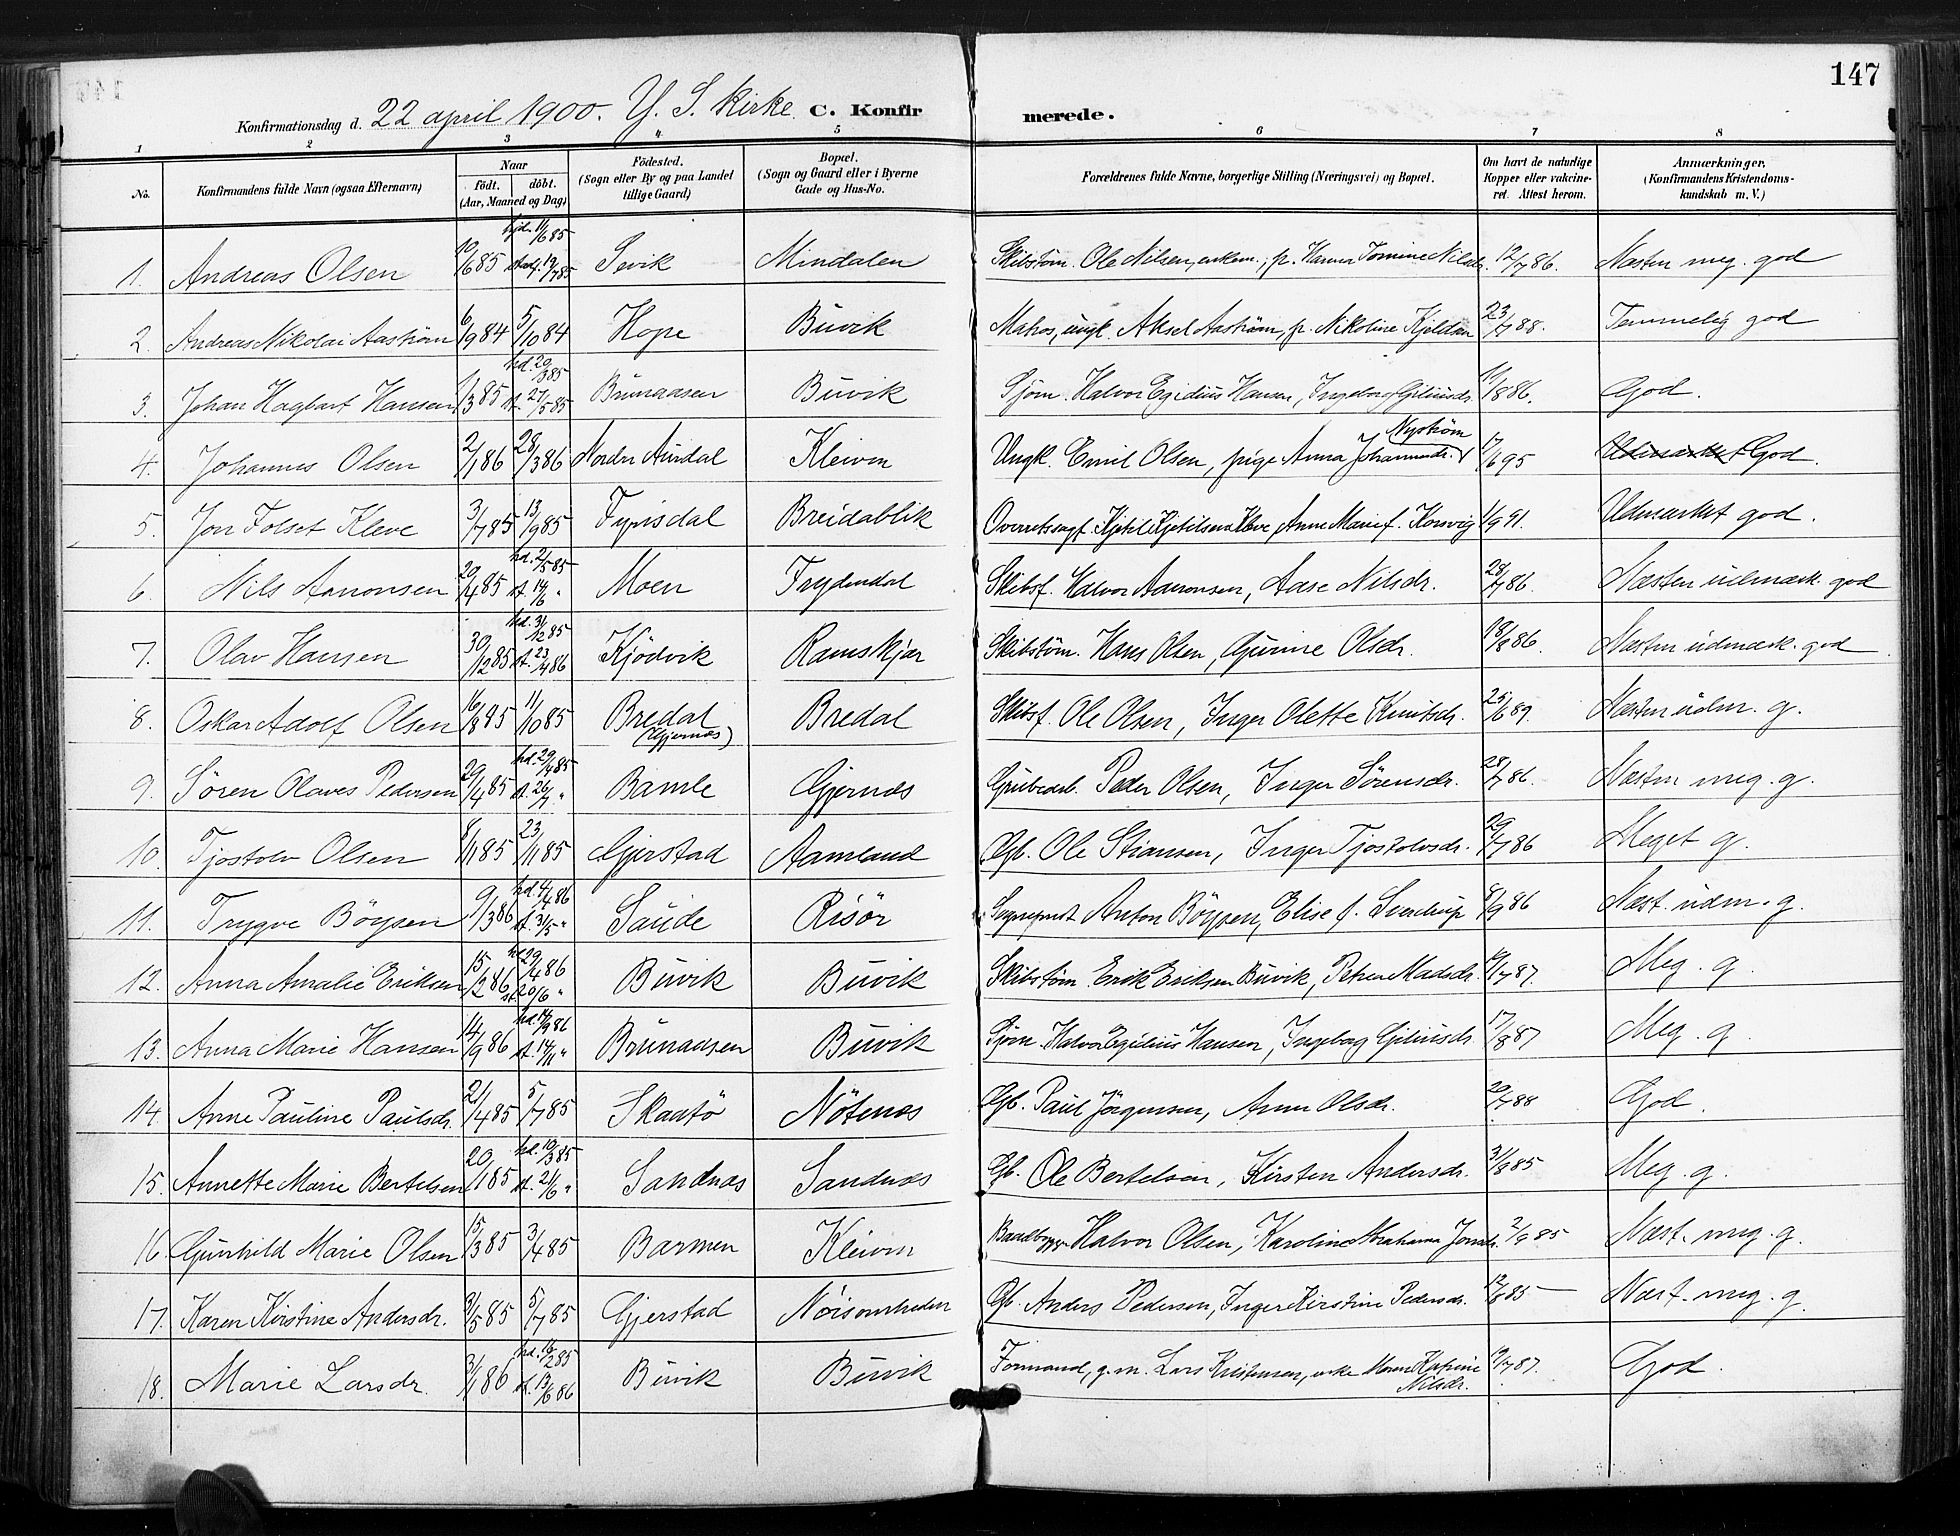 147
Konfirmationsdag d. 22 april 1900. Y. S. Kirke. C. Konfirmerede.
1 2 3 4 5 6 7 8
No. Konfirmandens fulde Navn (ogsaa Efternavn) Naar født. døbt. (Aar, Maaned og Dag) Fødested. (Sogn eller By og paa Landet tillige Gaard) Bopæl. (Sogn og Gaard eller i Byerne Gade og Hus-No. Forældrenes fulde Navne, borgerlige Stilling (Næringsvei) og Bopæl. Om havt de naturlige Kopper eller vakcineret. Attest herom. Anmærkninger. (Konfirmandens Kristendomskundskab m. V.)
1. Andreas Olsen 10/6 85 hjd. 11/6 85 stadf. 19/7 85 Sevik Mindalen Skibstøm. Ole Nilsen, enkem., p. Hanna Tomine Nilsdr. 12/7 86. Næsten meg. god
2. Andreas Nikolai Aastrøm 6/9 84 5/10 84 Hope Buvik Matros, ungk. Aksel Aastrøm, p. Nikoline Kjeldsen 23/7 88. Temmelig god
3. Johan Hagbart Hansen 1/3 85 hd. 20/3 85 st. 27/5 85 Brunaasen Buvik Sjøm. Halvor Egidius Hansen, Ingeborg Gjeliusdr. /8 86. God.
4. Johannes Olsen 2/1 86 28/3 86 Nordre Aurdal Kleiven Ungk. Emil Olsen, pige Anna Johannesdr. Nystrøm 17/6 95 God.
5. Jon Folset Kleve 3/7 85 13/9 85 Fyrisdal Breidablik Overretssagf. Kjetil Kjetilsen Kleve, Anne Marie f. Korsvig 1/9 91. Udmærket god.
6. Nils Aanonsen 20/4 85 hd. 2/5 85 st. 14/6 " Moen Frydendal Skibsf. Halvor Aanonsen, Aase Nilsdr. 28/7 86. Næsten udmærk. god
7. Olav Hansen 30/12 85 hd. 31/12 85 st. 23/4 86 Kjødvik Ramskjær Skibstøm. Hans Olsen, Gurine Olsdr. 18/8 86. Næsten udmærk. god
8. Oskar Adolf Olsen 16/8 85 11/10 85 Bredal (Gjernes) Bredal Skibsf. Ole Olsen, Inger Olette Knutsdr. 25/6 89. Næsten udm. g.
9. Søren Olaves Pedersen 29/4 85 hd. 29/4 85 st. 26/7 " Bamle Gjernæs Grubearb. Peder Olsen, Inger Sørensdr. 28/7 86. Næsten meg. g.
10. Tjøstolv Olsen 8/11 85 23/11 85 Gjerstad Aamland Gb. Ole Stiansen, Inger Tjøstolvsdr. 29/7 86 Meget g.
11. Trygve Bøysen 9/3 86 hd. 4/4 86 st. 31/5 " Saude Risør Sogneprest Anton Bøysen, Elise f. Sverdrup 8/9 86 Næst. udm. g.
12. Anna Amalie Eriksen 15/2 86 hd. 29/4 86 st. 20/6 " Buvik Buvik Skibstøm. Erik Eriksen Buvik, Petrea Madsdr. /7 87. Meg. g.
13. Anna Marie Hansen 14/9 86 hd. 14/9 86 st. 14/11 " Brunaasen Buvik Sjøm. Halvor Egidius Hansen, Ingeborg Gjeliusdr. 17/8 87 Meg. g.
14. Anne Pauline Paulsdr. 21/4 85 5/7 85 Skaatø Nøtenes Gb. Paul Jørgensen, Anne Olsdr. 20/7 88 God.
15. Annette Marie Bertelsen 20/1 85 hd. 10/3 85 st. 21/6 " Sandnæs Sandnæs Gb. Ole Bertelsen, Kirsten Andersdr. 31/8 85 Meg. g.
16. Gunhild Marie Olsen 15/3 85 3/4 85 Barmen Kleiven Baadbygger Halvor Olsen, Karoline Abrahama Jonsdr. 2/9 85 Næst. meg. g.
17. Karen Kirstine Andersdr. 9/5 85 5/7 85 Gjerstad Nøisomheden Gb. Anders Pedersen, Inger Kirstine Pedersdr. 12/8 85 — Næst. meg. g.
18. Marie Larsdr. 3/1 86 hd. 16/2 85 st. 13/6 86 Buvik Buvik Formand, g. m. Lars Kristensen, enke Maren Katrine Nilsdr. 19/7 87. God.